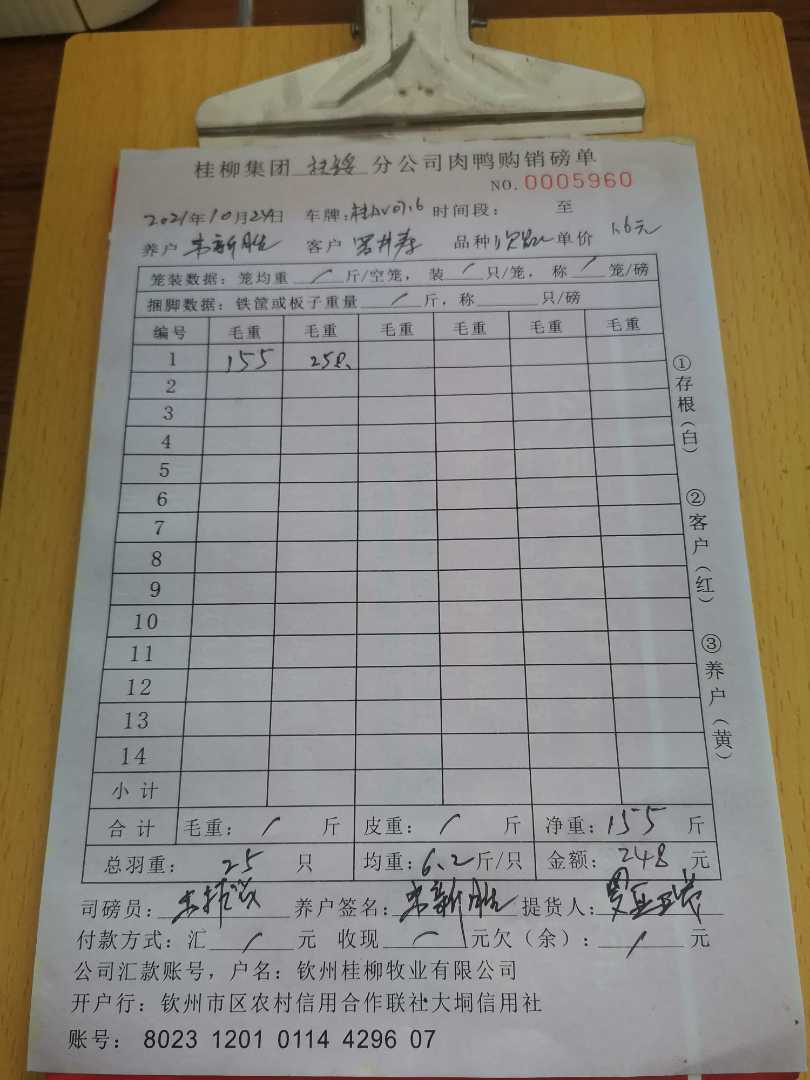 桂柳集团 分公司肉鸭购销磅单
NO. 0005960
2021年10月24日 车牌: 时间段: 至
养户 韦新胜 客户 品种 单价 1.6元
笼装数据: 笼均重 / 斤/空笼, 装 / 只/笼, 称 / 笼/磅
捆脚数据: 铁筐或板子重量 / 斤, 称 只/磅
编号 毛重 毛重 毛重 毛重 毛重 毛重
1 155 258
2
3
4
5
6
7
8
9
10
11
12
13
14
小计
合计 毛重: / 斤 皮重: / 斤 净重: 155 斤
总羽重: 25 只 均重: 6.2 斤/只 金额: 248 元
司磅员: 养户签名: 韦新胜 提货人:
付款方式: 汇 / 元 收现 / 元欠(余): / 元
公司汇款账号, 户名: 钦州桂柳牧业有限公司
开户行: 钦州市区农村信用合作联社大垌信用社
账号: 8023 1201 0114 4296 07
①存根(白) ②客户(红) ③养户(黄)